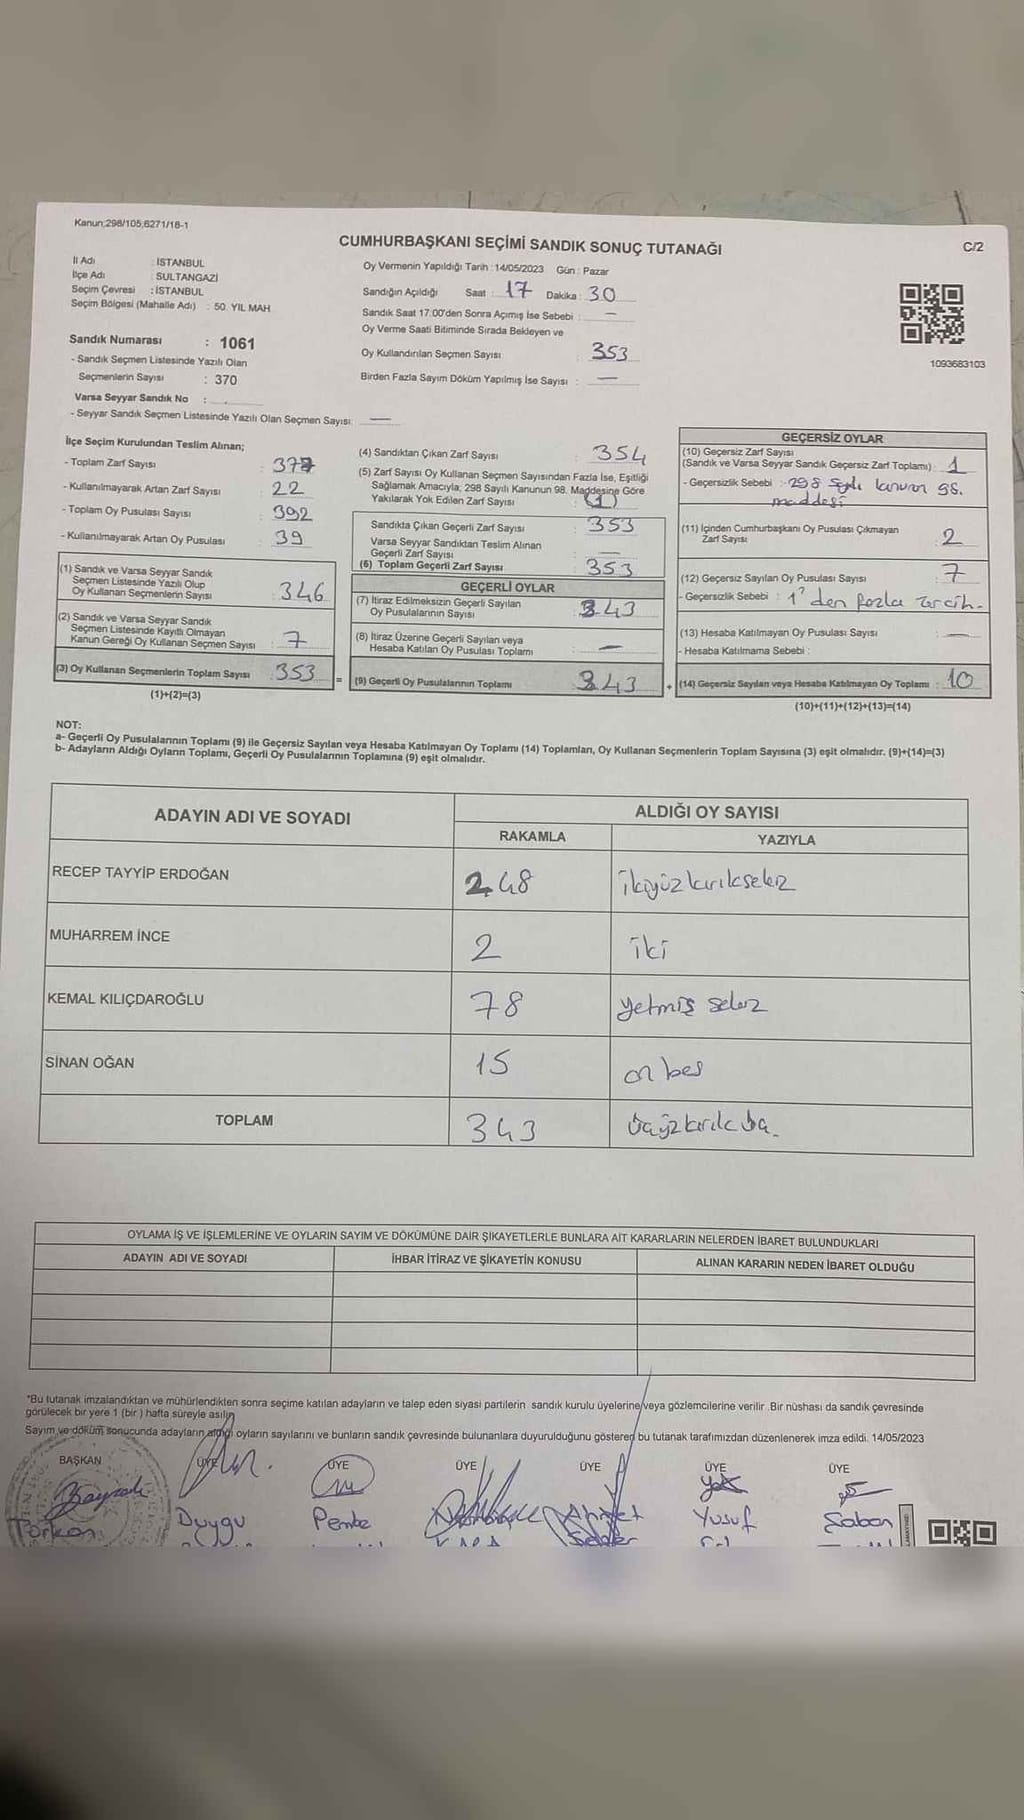 Kanun;298/105;6271/18-1
CUMHURBAŞKANI SEÇİMİ SANDIK SONUÇ TUTANAĞI
C/2
İl Adı : İSTANBUL
İlçe Adı : SULTANGAZİ
Seçim Çevresi : İSTANBUL
Seçim Bölgesi (Mahalle Adı) : 50. YIL MAH
Oy Vermenin Yapıldığı Tarih : 14/05/2023 Gün : Pazar
Sandığın Açıldığı Saat : 17 Dakika : 30
Sandık Saat 17:00'den Sonra Açımış İse Sebebi : —
Oy Verme Saati Bitiminde Sırada Bekleyen ve
Oy Kullandırılan Seçmen Sayısı : 353
Birden Fazla Sayım Döküm Yapılmış İse Sayısı : —
1093683103
Sandık Numarası : 1061
- Sandık Seçmen Listesinde Yazılı Olan
Seçmenlerin Sayısı : 370
Varsa Seyyar Sandık No :
- Seyyar Sandık Seçmen Listesinde Yazılı Olan Seçmen Sayısı: —
İlçe Seçim Kurulundan Teslim Alınan;
- Toplam Zarf Sayısı : 377
- Kullanılmayarak Artan Zarf Sayısı : 22
- Toplam Oy Pusulası Sayısı : 392
- Kullanılmayarak Artan Oy Pusulası : 39
(1) Sandık ve Varsa Seyyar Sandık
Seçmen Listesinde Yazılı Olup
Oy Kullanan Seçmenlerin Sayısı : 346
(2) Sandık ve Varsa Seyyar Sandık
Seçmen Listesinde Kayıtlı Olmayan
Kanun Gereği Oy Kullanan Seçmen Sayısı : 7
(3) Oy Kullanan Seçmenlerin Toplam Sayısı : 353
(1)+(2)=(3)
(4) Sandıktan Çıkan Zarf Sayısı : 354
(5) Zarf Sayısı Oy Kullanan Seçmen Sayısından Fazla İse, Eşitliği
Sağlamak Amacıyla, 298 Sayılı Kanunun 98. Maddesine Göre
Yakılarak Yok Edilen Zarf Sayısı : (1)
Sandıkta Çıkan Geçerli Zarf Sayısı : 353
Varsa Seyyar Sandıktan Teslim Alınan
Geçerli Zarf Sayısı : —
(6) Toplam Geçerli Zarf Sayısı : 353
GEÇERLİ OYLAR
(7) İtiraz Edilmeksizin Geçerli Sayılan
Oy Pusulalarının Sayısı : 343
(8) İtiraz Üzerine Geçerli Sayılan veya
Hesaba Katılan Oy Pusulası Toplamı : —
= (9) Geçerli Oy Pusulalarının Toplamı : 343
GEÇERSİZ OYLAR
(10) Geçersiz Zarf Sayısı
(Sandık ve Varsa Seyyar Sandık Geçersiz Zarf Toplamı) : 1
- Geçersizlik Sebebi : 298 Sayılı kanunun 98.
maddesi
(11) İçinden Cumhurbaşkanı Oy Pusulası Çıkmayan
Zarf Sayısı : 2
(12) Geçersiz Sayılan Oy Pusulası Sayısı : 7
- Geçersizlik Sebebi : 1'den fazla tercih.
(13) Hesaba Katılmayan Oy Pusulası Sayısı : —
- Hesaba Katılmama Sebebi :
+ (14) Geçersiz Sayılan veya Hesaba Katılmayan Oy Toplamı : 10
(10)+(11)+(12)+(13)=(14)
NOT:
a- Geçerli Oy Pusulalarının Toplamı (9) ile Geçersiz Sayılan veya Hesaba Katılmayan Oy Toplamı (14) Toplamları, Oy Kullanan Seçmenlerin Toplam Sayısına (3) eşit olmalıdır. (9)+(14)=(3)
b- Adayların Aldığı Oyların Toplamı, Geçerli Oy Pusulalarının Toplamına (9) eşit olmalıdır.
ADAYIN ADI VE SOYADI
ALDIĞI OY SAYISI
RAKAMLA YAZIYLA
RECEP TAYYİP ERDOĞAN 248 ikiyüzkırıksekiz
MUHARREM İNCE 2 iki
KEMAL KILIÇDAROĞLU 78 yetmiş sekiz
SİNAN OĞAN 15 on beş
TOPLAM 343
OYLAMA İŞ VE İŞLEMLERİNE VE OYLARIN SAYIM VE DÖKÜMÜNE DAİR ŞİKAYETLERLE BUNLARA AİT KARARLARIN NELERDEN İBARET BULUNDUKLARI
ADAYIN ADI VE SOYADI İHBAR İTİRAZ VE ŞİKAYETİN KONUSU ALINAN KARARIN NEDEN İBARET OLDUĞU
*Bu tutanak imzalandıktan ve mühürlendikten sonra seçime katılan adayların ve talep eden siyasi partilerin sandık kurulu üyelerine/veya gözlemcilerine verilir .Bir nüshası da sandık çevresinde
görülecek bir yere 1 (bir ) hafta süreyle asılır.
Sayım ve döküm sonucunda adayların aldığı oyların sayılarını ve bunların sandık çevresinde bulunanlara duyurulduğunu gösteren bu tutanak tarafımızdan düzenlenerek imza edildi. 14/05/2023
BAŞKAN ÜYE ÜYE ÜYE ÜYE ÜYE ÜYE
Duygu Pembe Ahmet Yusuf Şaban